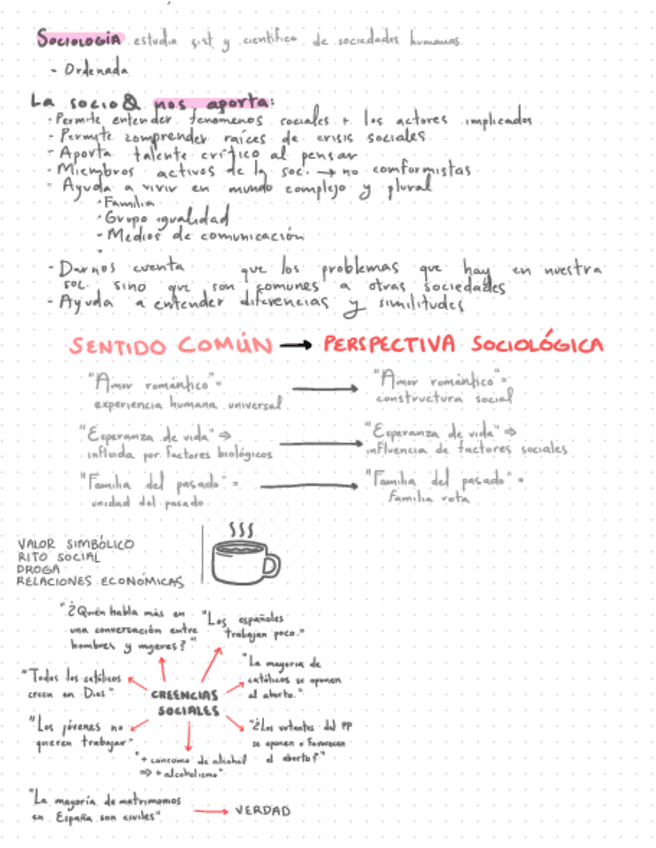 SOCIOLOGÍA estudia sist y científico de sociedades humanas.
- Ordenada
La socio& nos aporta:
- Permite entender fenómenos sociales + los actores implicados
- Permite comprender raíces de crisis sociales
- Aporta talente crítico al pensar
- Miembros activos de la soc. → no comformistas
- Ayuda a vivir en mundo complejo y plural
- Familia
- Grupo igualidad
- Medios de comunicación
- Darnos cuenta que los problemas que hay en nuestra
soc. sino que son comunes a otras sociedades
- Ayuda a entender diferencias y similitudes
SENTIDO COMÚN → PERSPECTIVA SOCIOLÓGICA
"Amor romántico" = → "Amor romántico" =
experiencia humana universal constructura social
"Esperanza de vida" ⇒ → "Esperanza de vida" ⇒
influida por factores biológicos influencia de factores sociales
"Familia del pasado" = → "Familia del pasado" =
unidad del pasado familia rota
VALOR SIMBÓLICO
RITO SOCIAL
DROGA
RELACIONES ECONÓMICAS
"¿Quén habla más en
una conversación entre
hombres y mujeres?"
"Los españoles
trabajan poco."
"Todos los católicos
creen en Dios"
"La mayoría de
católicos se oponen
al aborto."
CREENCIAS
SOCIALES
"Los jóvenes no
quieren trabajar"
"¿Los votantes del PP
se oponen o favorecen
el aborto?"
"+ consumo de alcohol
⇒ + alcoholismo"
"La mayoría de matrimonios
en España son civiles" → VERDAD